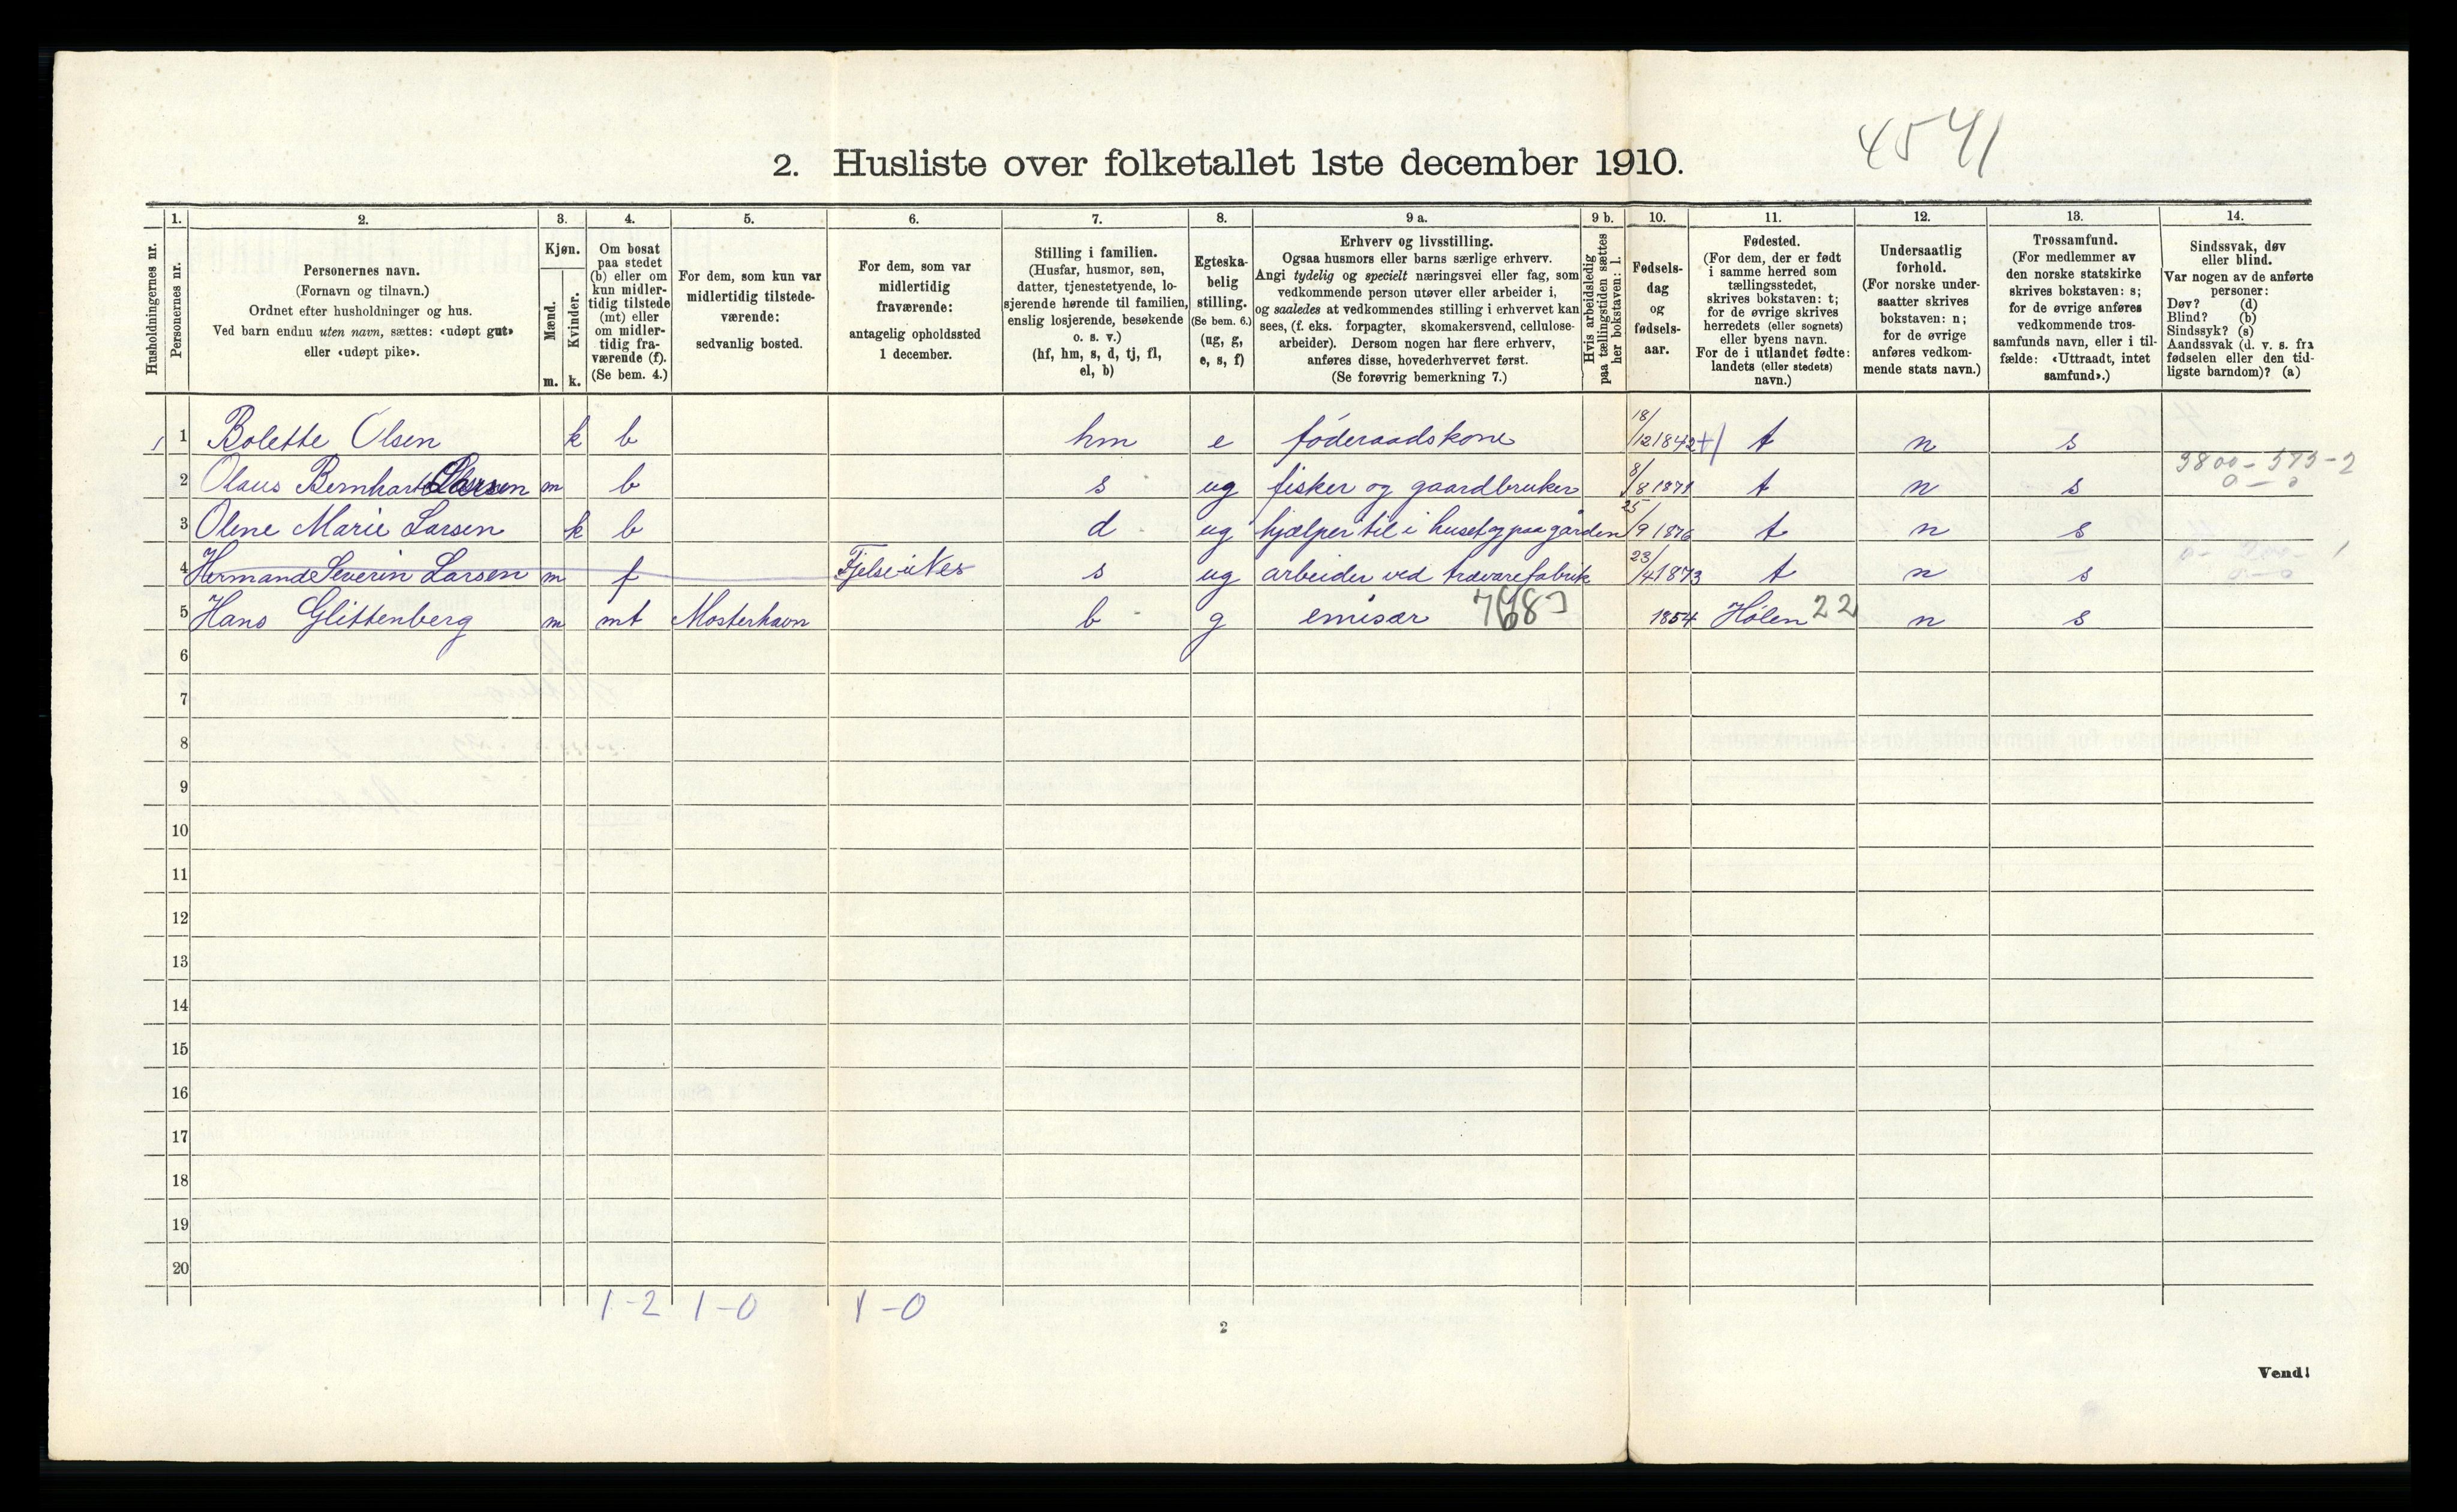 4541
2. Husliste over folketallet 1ste december 1910.
Husholdningernes nr.
1.
Personernes nr.
2.
Personernes navn.
(Fornavn og tilnavn.)
Ordnet efter husholdninger og hus.
Ved barn endnu uten navn, sættes: «udøpt gut»
eller «udøpt pike».
3.
Kjøn.
Mænd.
Kvinder.
m. k.
4.
Om bosat
paa stedet
(b) eller om
kun midler-
tidig tilstede
(mt) eller
om midler-
tidig fra-
værende (f).
(Se bem. 4.)
5.
For dem, som kun var
midlertidig tilstede-
værende:
sedvanlig bosted.
6.
For dem, som var
midlertidig
fraværende:
antagelig opholdssted
1 december.
7.
Stilling i familien.
(Husfar, husmor, søn,
datter, tjenestetyende, lo-
sjerende hørende til familien,
enslig losjerende, besøkende
o. s. v.)
(hf, hm, s, d, tj, fl,
el, b)
8.
Egteska-
belig
stilling.
(Se bem. 6.)
(ug, g,
e, s, f)
9 a.
Erhverv og livsstilling.
Ogsaa husmors eller barns særlige erhverv.
Angi tydelig og specielt næringsvei eller fag, som
vedkommende person utøver eller arbeider i,
og saaledes at vedkommendes stilling i erhvervet kan
sees, (f. eks. forpagter, skomakersvend, cellulose-
arbeider). Dersom nogen har flere erhverv,
anføres disse, hovederhvervet først.
(Se forøvrig bemerkning 7.)
9 b.
Hvis arbeidsledig
paa tællingstiden sættes
her bokstaven: l.
10.
Fødsels-
dag
og
fødsels-
aar.
11.
Fødested.
(For dem, der er født
i samme herred som
tællingsstedet,
skrives bokstaven: t;
for de øvrige skrives
herredets (eller sognets)
eller byens navn.
For de i utlandet fødte:
landets (eller stedets)
navn.)
12.
Undersaatlig
forhold.
(For norske under-
saatter skrives
bokstaven: n;
for de øvrige
anføres vedkom-
mende stats navn.)
13.
Trossamfund.
(For medlemmer av
den norske statskirke
skrives bokstaven: s;
for de øvrige anføres
vedkommende tros-
samfunds navn, eller i til-
fælde: «Uttraadt, intet
samfund».)
14.
Sindssvak, døv
eller blind.
Var nogen av de anførte
personer:
Døv? (d)
Blind? (b)
Sindssyk? (s)
Aandssvak (d. v. s. fra
fødselen eller den tid-
ligste barndom)? (a)
1 1 Bolette Olsen k b hm e føderaadskone 18/12 1842 t n s
2 Olaus Bernhard Larsen m b s ug fisker og gaardbruker 8/8 1871 t n s
3 Olene Marie Larsen k b d ug hjælper til i huset og paa gården 25/9 1876 t n s
4 Hermand Severin Larsen m f s ug arbeider ved trævarefabrik 23/4 1873 t n s
5 Hans Glittenberg m mt Mosterhavn b g emisær 1854 Hölen 22 n s
6
7
8
9
10
11
12
13
14
15
16
17
18
19
20
1-2 1-0 1-0
2
Vend!